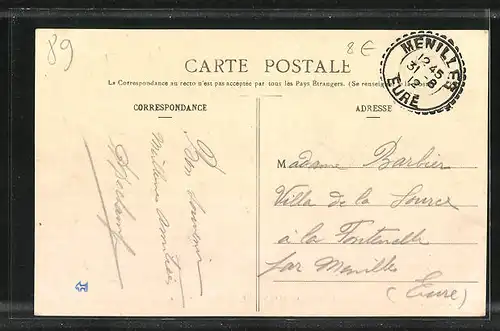 89
8 €
CARTE POSTALE
La Correspondance au recto n'est pas acceptée par tous les Pays Étrangers. (Se renseigner
MENILLES
12 45
31 - 8
12
EURE
CORRESPONDANCE
ADRESSE
Bon souvenir
Meilleures amitiés
Madame Barbier
Villa de la Source
à la Fontenelle
par Menilles
(Eure)